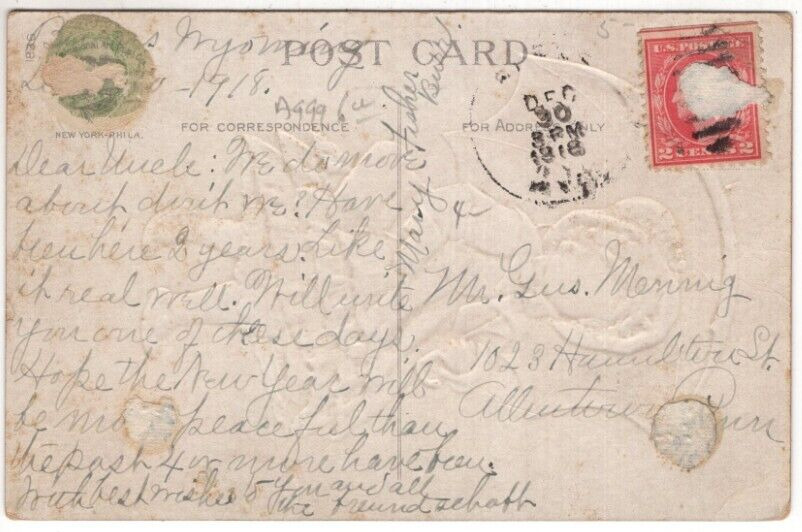 1836
POST CARD
NEW YORK-PHILA.
FOR CORRESPONDENCE
FOR ADDRESS ONLY
Wyoming
1918.
Dear Uncle: We do move
about, don't we? Have
been here 2 years. Like
it real well. Will write
you one of these days.
Hope the New Year will
be mo peaceful than
the past 4 or more have been.
With best wishes to you and all
the Freundschaft
Mary Fisher
DEC
30
PM
1918
U.S. POSTAGE
2 CENTS 2
Mr. Gus. Mennig
1023 Hamilton St.
Allentown
Penn